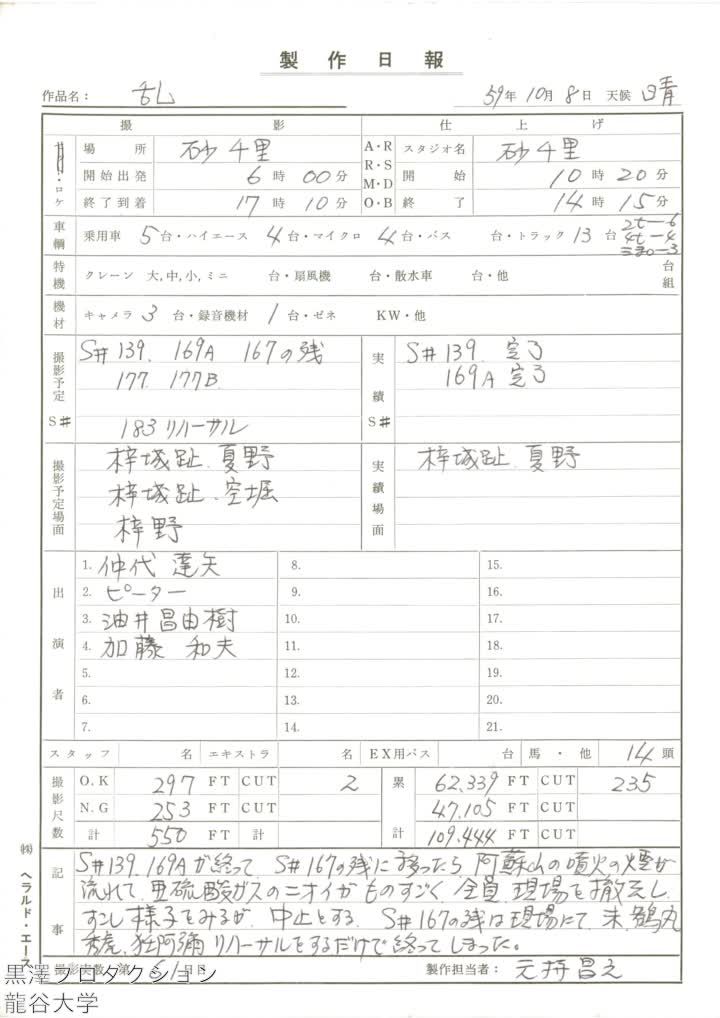 製作日報
作品名: 乱 59年10月8日 天候 晴
撮影 仕上げ
ロケ 場所 砂千里 A・R スタジオ名 砂千里
開始出発 6時00分 R・S 開始 10時20分
M・D
終了到着 17時10分 O・B 終了 14時15分
2t-6
車輌 乗用車 5台・ハイエース 4台・マイクロ 4台・バス 台・トラック 13台 4t-4
特機 クレーン 大,中,小,ミニ 台・扇風機 台・散水車 台・他 台組
機材 キャメラ 3台・録音機材 1台・ゼネ KW・他
撮影予定S# S#139. 169A 167の残 実績S# S#139. 完了
177. 177B 169A 完了
183 リハーサル
撮影予定場面 梓城趾.夏野 実績場面 梓城趾.夏野
梓城趾.空堀
梓野
出演者 1. 仲代達矢 8. 15.
2. ピーター 9. 16.
3. 油井昌由樹 10. 17.
4. 加藤和夫 11. 18.
5. 12. 19.
6. 13. 20.
7. 14. 21.
スタッフ 名 エキストラ 名 EX用バス 台 馬・他 14頭
撮影尺数 O.K 297 FT CUT 2 累計 62.339 FT CUT 235
N.G 253 FT CUT 47.105 FT CUT
計 550 FT 計 109.444 FT CUT
記事 S#139.169Aが終って S#167の残に移ったら 阿蘇山の噴火の煙が
流れて、亜硫酸ガスのニオイがものすごく、全員 現場を撤去し
すこし様子をみるが、中止とする。S#167の残は現場にて 末.鶴丸
秀虎、狂阿彌 リハーサルをするだけで終ってしまった。
撮影実数 第61日 製作担当者:
㈱ヘラルド・エース
黒澤プロダクション
龍谷大学